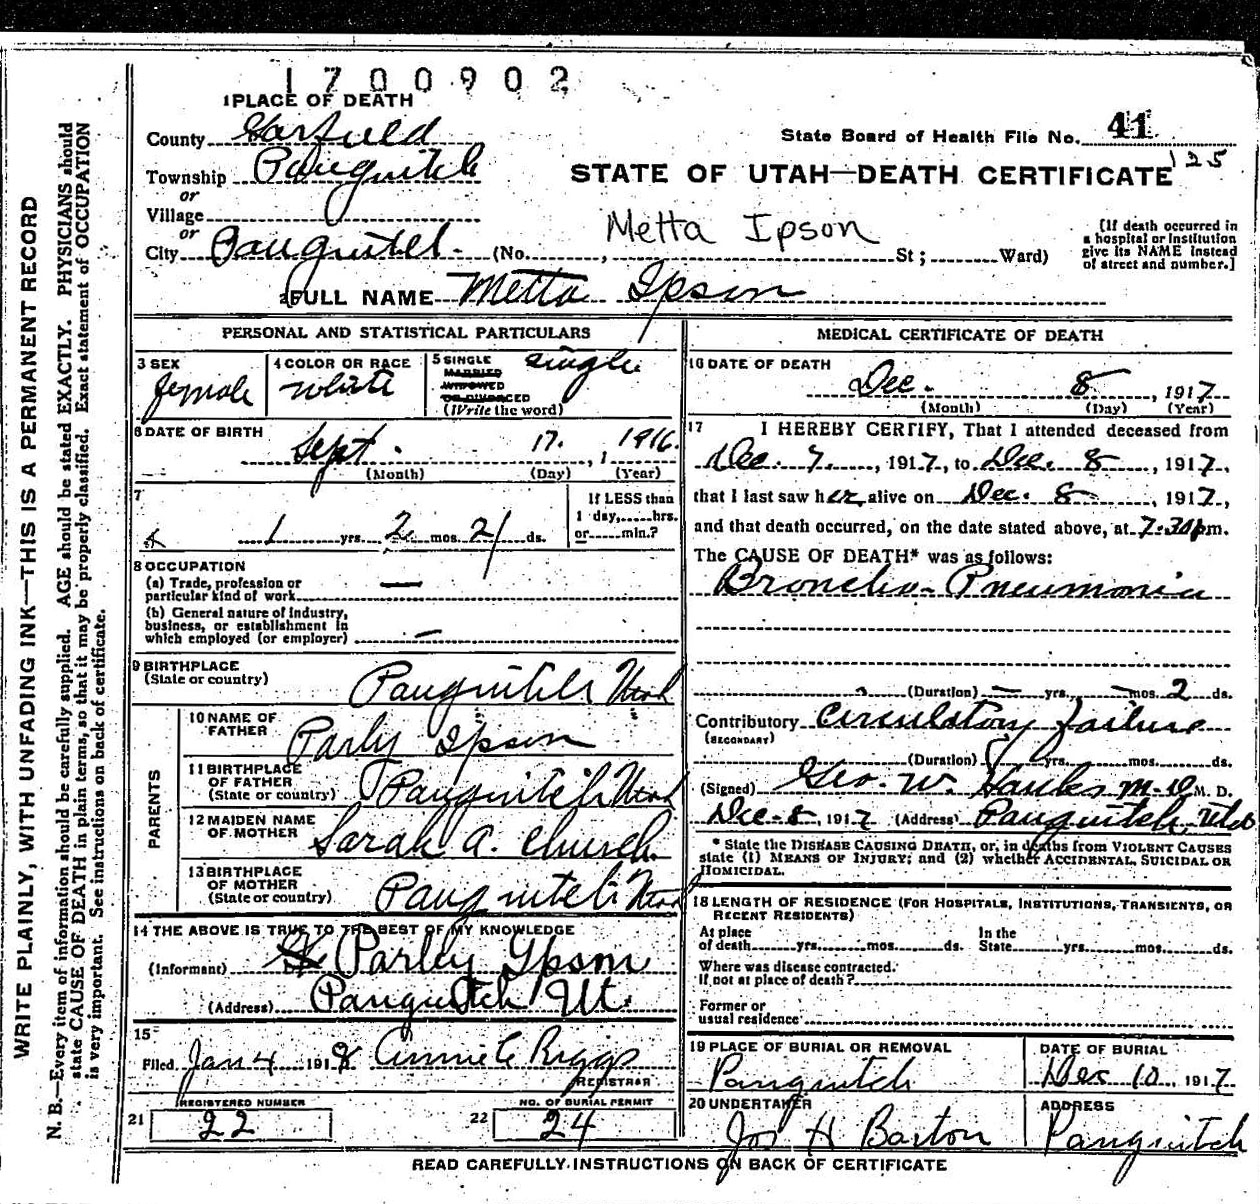 1700902
1 PLACE OF DEATH
County Garfield
State Board of Health File No. 41
Township Panguitch
125
STATE OF UTAH—DEATH CERTIFICATE
or
Village
or
Metta Ipson
City Panguitch. (No. , St; Ward)
[If death occurred in a hospital or institution give its NAME instead of street and number.]
2 FULL NAME Metta Ipson
PERSONAL AND STATISTICAL PARTICULARS
3 SEX female
4 COLOR OR RACE white
5 SINGLE MARRIED WIDOWED OR DIVORCED (Write the word) single
6 DATE OF BIRTH
Sept. 17, 1916.
(Month) (Day) , 1 (Year)
7
1 yrs. 2 mos. 21 ds.
If LESS than 1 day, hrs. or min.?
8 OCCUPATION
(a) Trade, profession or particular kind of work —
(b) General nature of industry, business, or establishment in which employed (or employer) —
9 BIRTHPLACE
(State or country) Panguitch Utah
PARENTS
10 NAME OF FATHER Parly Ipson
11 BIRTHPLACE OF FATHER (State or country) Panguitch Utah
12 MAIDEN NAME OF MOTHER Sarah A. Church.
13 BIRTHPLACE OF MOTHER (State or country) Panguitch Utah
14 THE ABOVE IS TRUE TO THE BEST OF MY KNOWLEDGE
(Informant) Parley Ipson
(Address) Panguitch Ut.
15
Filed Jan 4 1918 Annie C Riggs
REGISTRAR
21 REGISTERED NUMBER 22
22 NO. OF BURIAL PERMIT 24
MEDICAL CERTIFICATE OF DEATH
16 DATE OF DEATH
Dec. 8, 1917
(Month) (Day) (Year)
17 I HEREBY CERTIFY, That I attended deceased from
Dec. 7, 1917, to Dec. 8, 1917,
that I last saw her alive on Dec. 8, 1917,
and that death occurred, on the date stated above, at 7:30 pm.
The CAUSE OF DEATH* was as follows:
Broncho-Pneumonia
(Duration) — yrs. — mos. 2 ds.
Contributory Circulatory failure
(SECONDARY)
(Duration) yrs. mos. ds.
(Signed) Geo. W. M.D M. D.
Dec-8, 1917 (Address) Panguitch, Utah
* State the DISEASE CAUSING DEATH, or, in deaths from VIOLENT CAUSES
state (1) MEANS OF INJURY; and (2) whether ACCIDENTAL, SUICIDAL OR
HOMICIDAL.
18 LENGTH OF RESIDENCE (FOR HOSPITALS, INSTITUTIONS, TRANSIENTS, OR
RECENT RESIDENTS)
At place of death yrs. mos. ds. In the State yrs. mos. ds.
Where was disease contracted.
If not at place of death?
Former or
usual residence
19 PLACE OF BURIAL OR REMOVAL
Panguitch
DATE OF BURIAL
Dec 10, 1917
20 UNDERTAKER
Jos H Barton
ADDRESS
Panguitch
READ CAREFULLY INSTRUCTIONS ON BACK OF CERTIFICATE
WRITE PLAINLY, WITH UNFADING INK—THIS IS A PERMANENT RECORD
N. B.—Every item of information should be carefully supplied. AGE should be stated EXACTLY. PHYSICIANS should
state CAUSE OF DEATH in plain terms, so that it may be properly classified. Exact statement of OCCUPATION
is very important. See instructions on back of certificate.